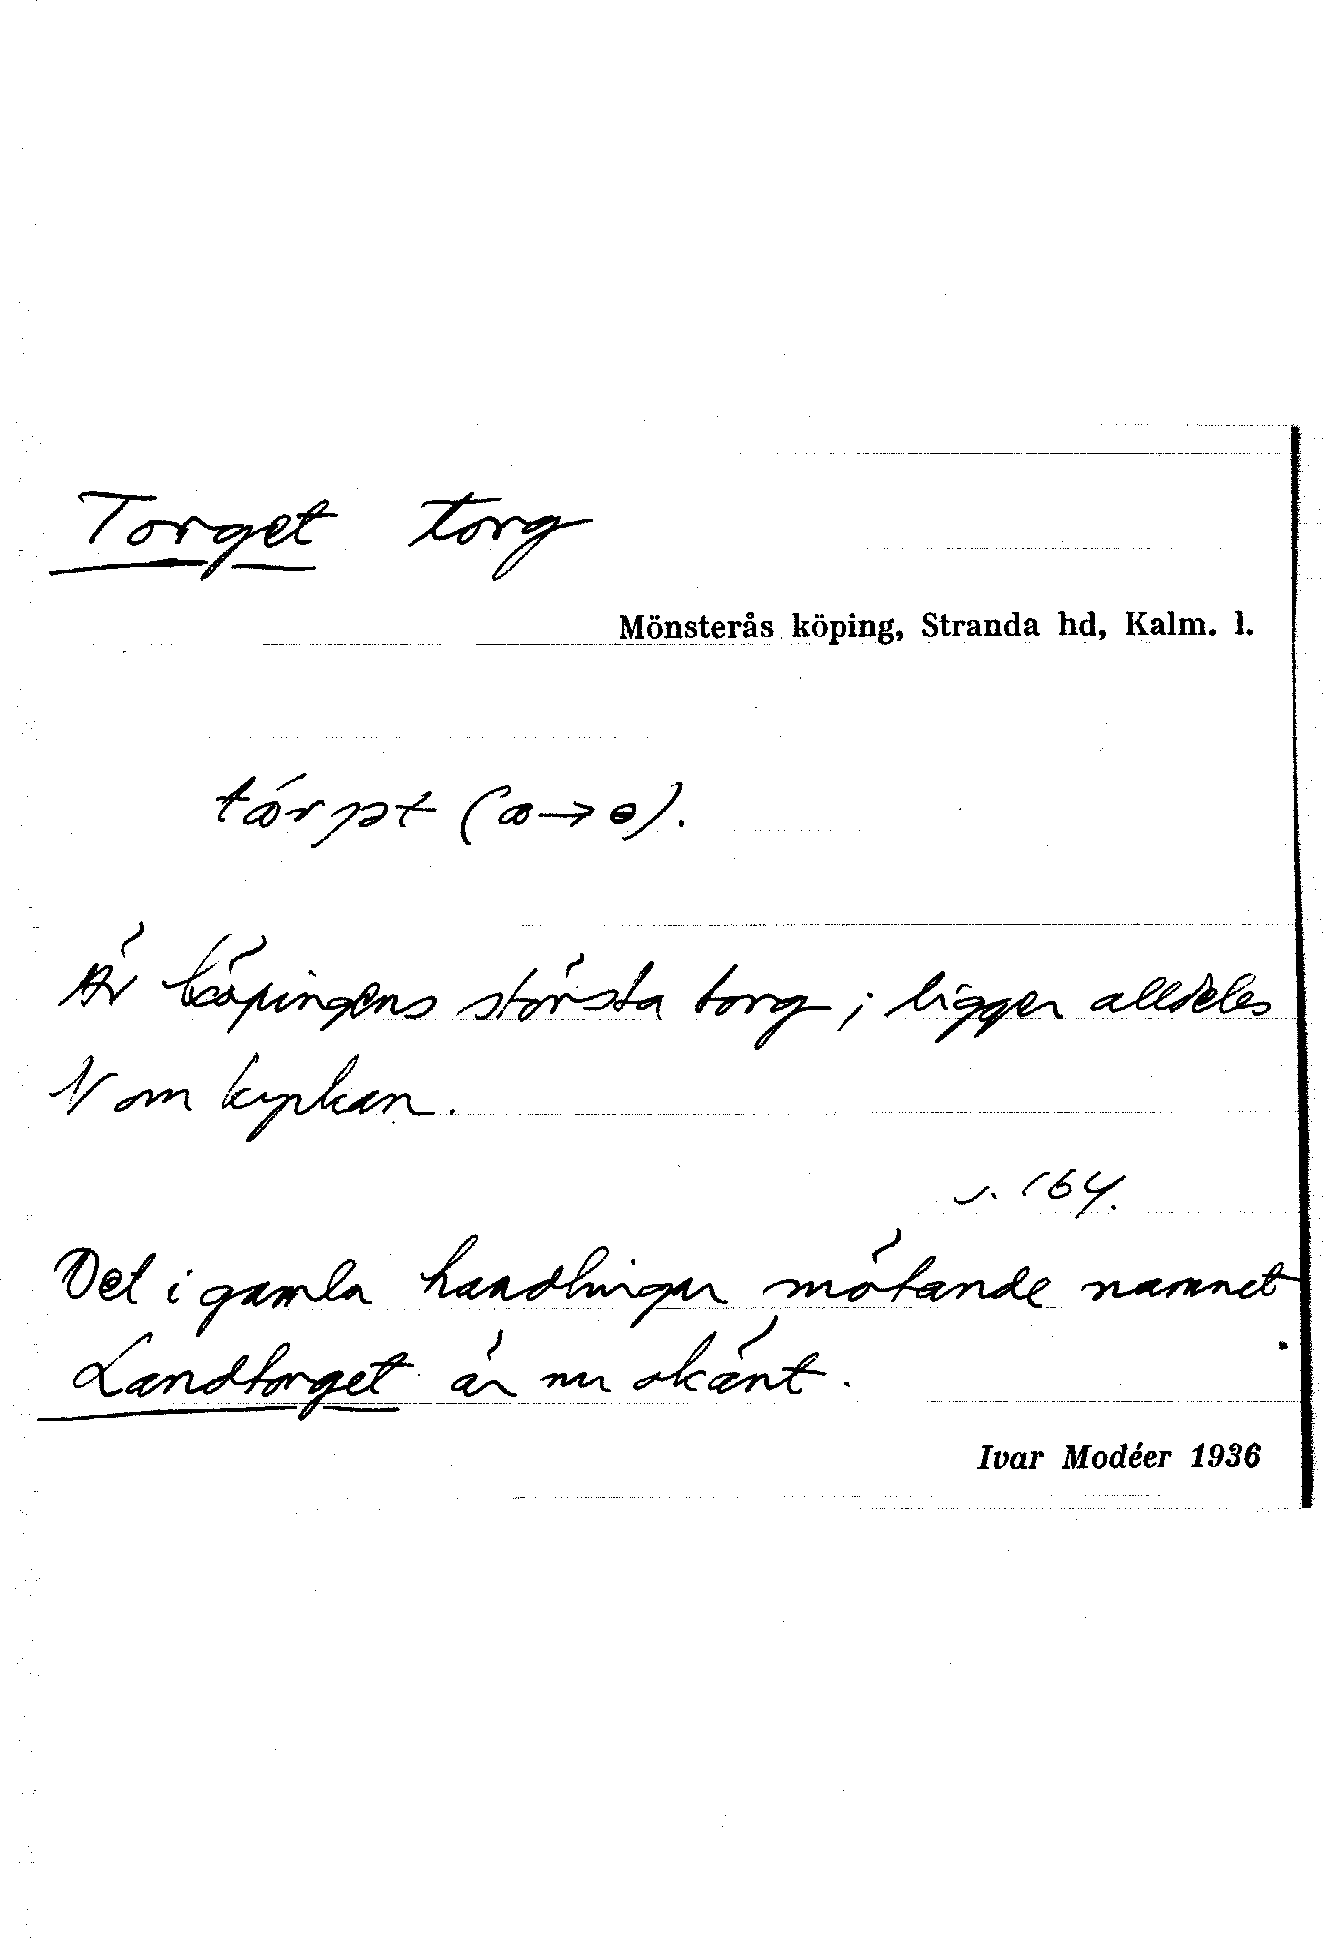 Torget torg
Mönsterås köping, Stranda hd, Kalm. l.
(ꝏ→ɵ).
Är köpingens största torg; ligger alldeles
N om kyrkan.
s. 164.
Det i gamla handlingar mötande namnet
Landtorget är nu okänt.
Ivar Modéer 1936